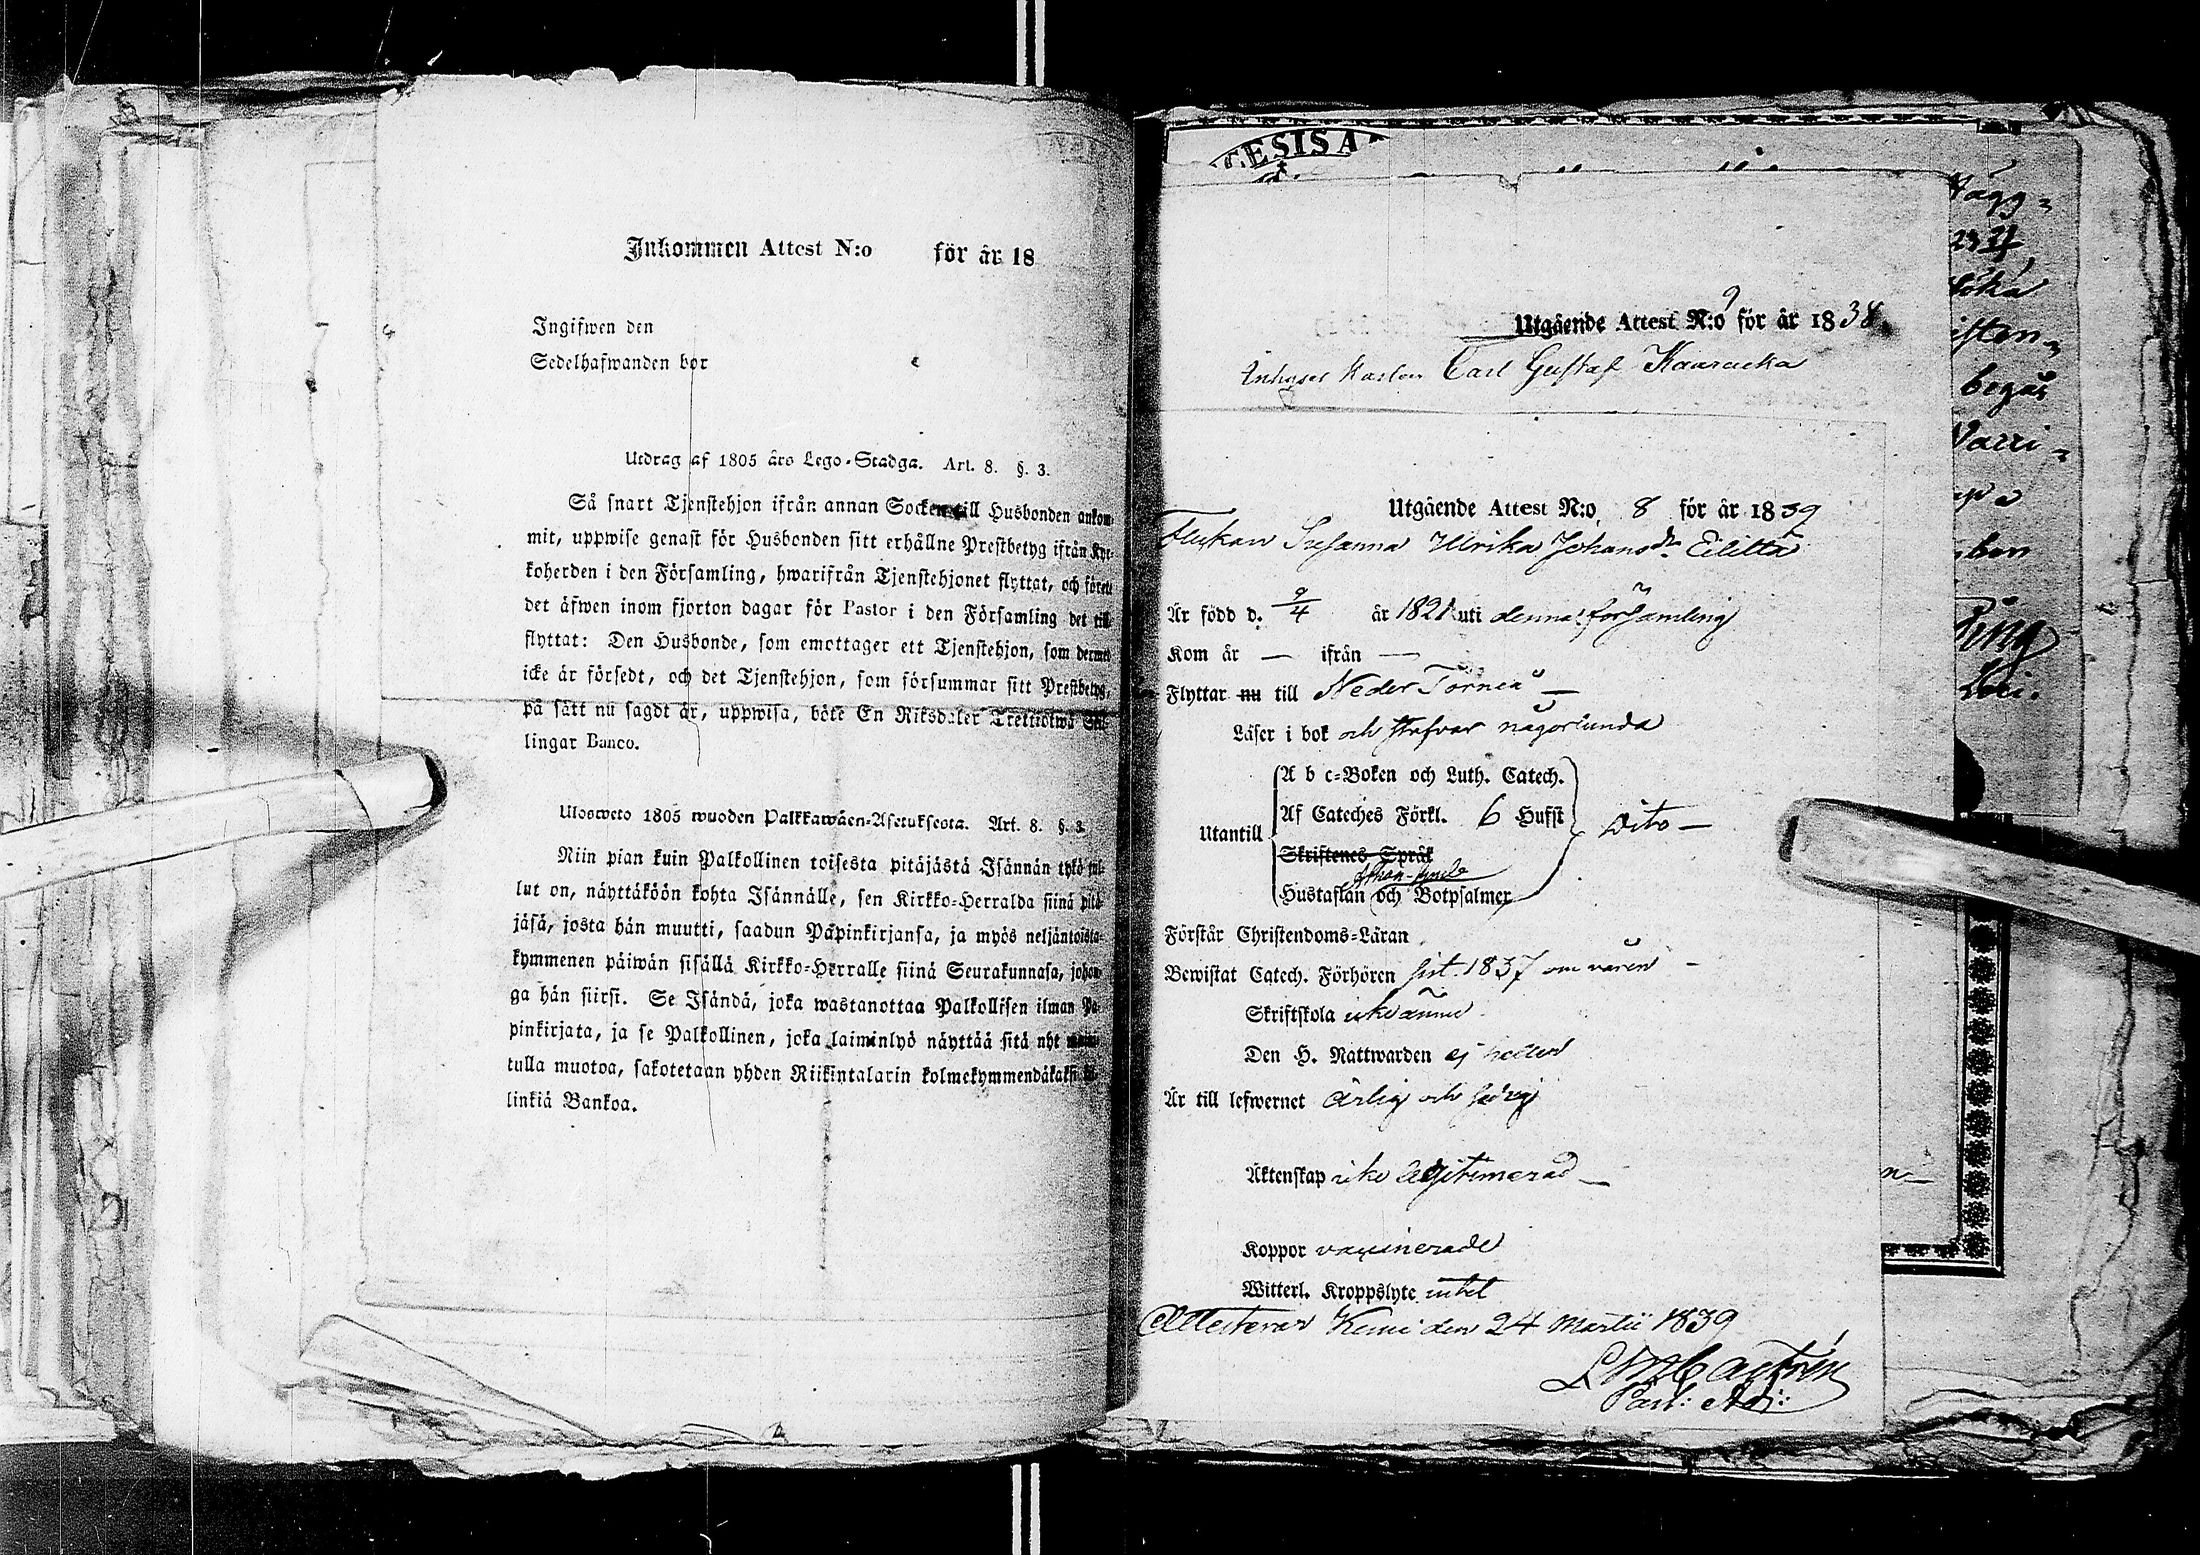 Inkommen Attest N:o för år 18
Ingifwen den
Sedelhafwanden bor
Utdrag af 1805 års Lego-Stadga. Art. 8. §. 3.
Så snart Tjenstehjon ifrån annan Socken till Husbonden ankom-
mit, uppwise genast för Husbonden sitt erhållne Prestbetyg ifrån Kyr-
koherden i den Församling, hwarifrån Tjenstehjonet flyttat, och förete
det äfwen inom fjorton dagar för Pastor i den Församling det till
flyttat: Den Husbonde, som emottager ett Tjenstehjon, som dermed
icke är försedt, och det Tjenstehjon, som försummar sitt Prestbetyg,
på sätt nu sagdt är, uppwisa, böte En Riksdaler Trettiotwå Skil-
lingar Banco.
Ulosweto 1805 wuoden Palkkawäen-Asetuksesta. Art. 8. §. 3.
Niin pian kuin Palkollinen toisesta pitäjästä Isännän tykö tul-
lut on, näyttäköön kohta Isännälle, sen Kirkko-Herralda siinä pitä-
jäsä, josta hän muutti, saadun Papinkirjansa, ja myös neljäntoista-
kymmenen päiwän sisällä Kirkko-Herralle siinä Seurakunnasa, johon-
ga hän siirsi. Se Isändä, joka wastanottaa Palkollisen ilman Pa-
pinkirjata, ja se Palkollinen, joka laiminlyö näyttää sitä nyt
tulla muotoa, sakotetaan yhden Riikintalarin kolmekymmendäkaksi
linkiä Bankoa.
ESIS A
Utgående Attest N:o 9 för år 1838
Inhyses Karlen Carl Gustaf Kaaracka
Utgående Attest N:o 8 för år 1839
Flickan Susanna Ulrika Johansdr Eilitta
Är född d. 9/4 år 1821 uti denna församling
Kom år — ifrån —
Flyttar nu till Neder Torneå —
Läser i bok och stafvar någorlunda
A b c-Boken och Luth. Catech.
Af Cateches Förkl. 6 Hufst
Utantill Dito —
Skriftenes Språk
Hustaflan och Botpsalmer
Förstår Christendoms-Läran
Bewistat Catech. Förhören sist 1837 om våren —
Skriftskola icke ännu
Den H. Nattwarden ej heller
Är till lefwernet ärlig och sedig
Äktenskap icke legitimerad —
Koppor vaccinerade
Witterl. Kroppslyte intet
Attesterar Kemi den 24 Martii 1839
Castrén
Past: Adj:
Hägg=
söka
isten=
begär
Ning
n—